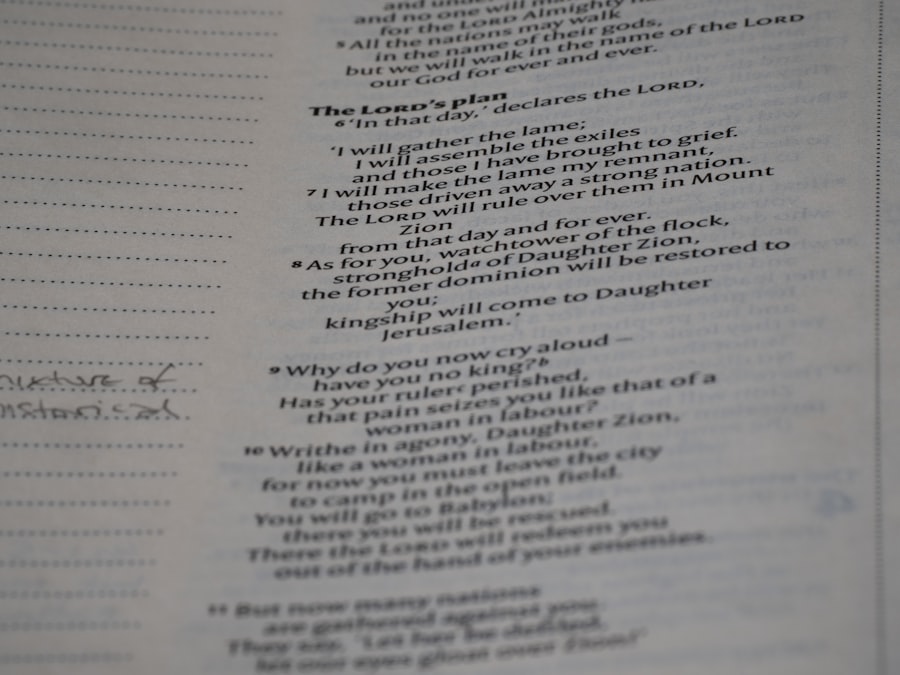 and no one will
for the LORD Almighty
5 All the nations may walk
in the name of their gods,
but we will walk in the name of the LORD
our God for ever and ever.
The LORD's plan
6 'In that day,' declares the LORD,
'I will gather the lame;
I will assemble the exiles
and those I have brought to grief.
7 I will make the lame my remnant,
those driven away a strong nation.
The LORD will rule over them in Mount
Zion
from that day and for ever.
8 As for you, watchtower of the flock,
stronghold a of Daughter Zion,
the former dominion will be restored to
you;
kingship will come to Daughter
Jerusalem.'
9 Why do you now cry aloud –
have you no king? b
Has your ruler c perished,
that pain seizes you like that of a
woman in labour?
10 Writhe in agony, Daughter Zion,
like a woman in labour,
for now you must leave the city
to camp in the open field.
You will go to Babylon;
there you will be rescued.
There the LORD will redeem you
out of the hand of your enemies.
11 But now many nations
are gathered against you.
They say, 'Let her be defiled,
let our eyes gloat over Zion!'
mixture of
historical